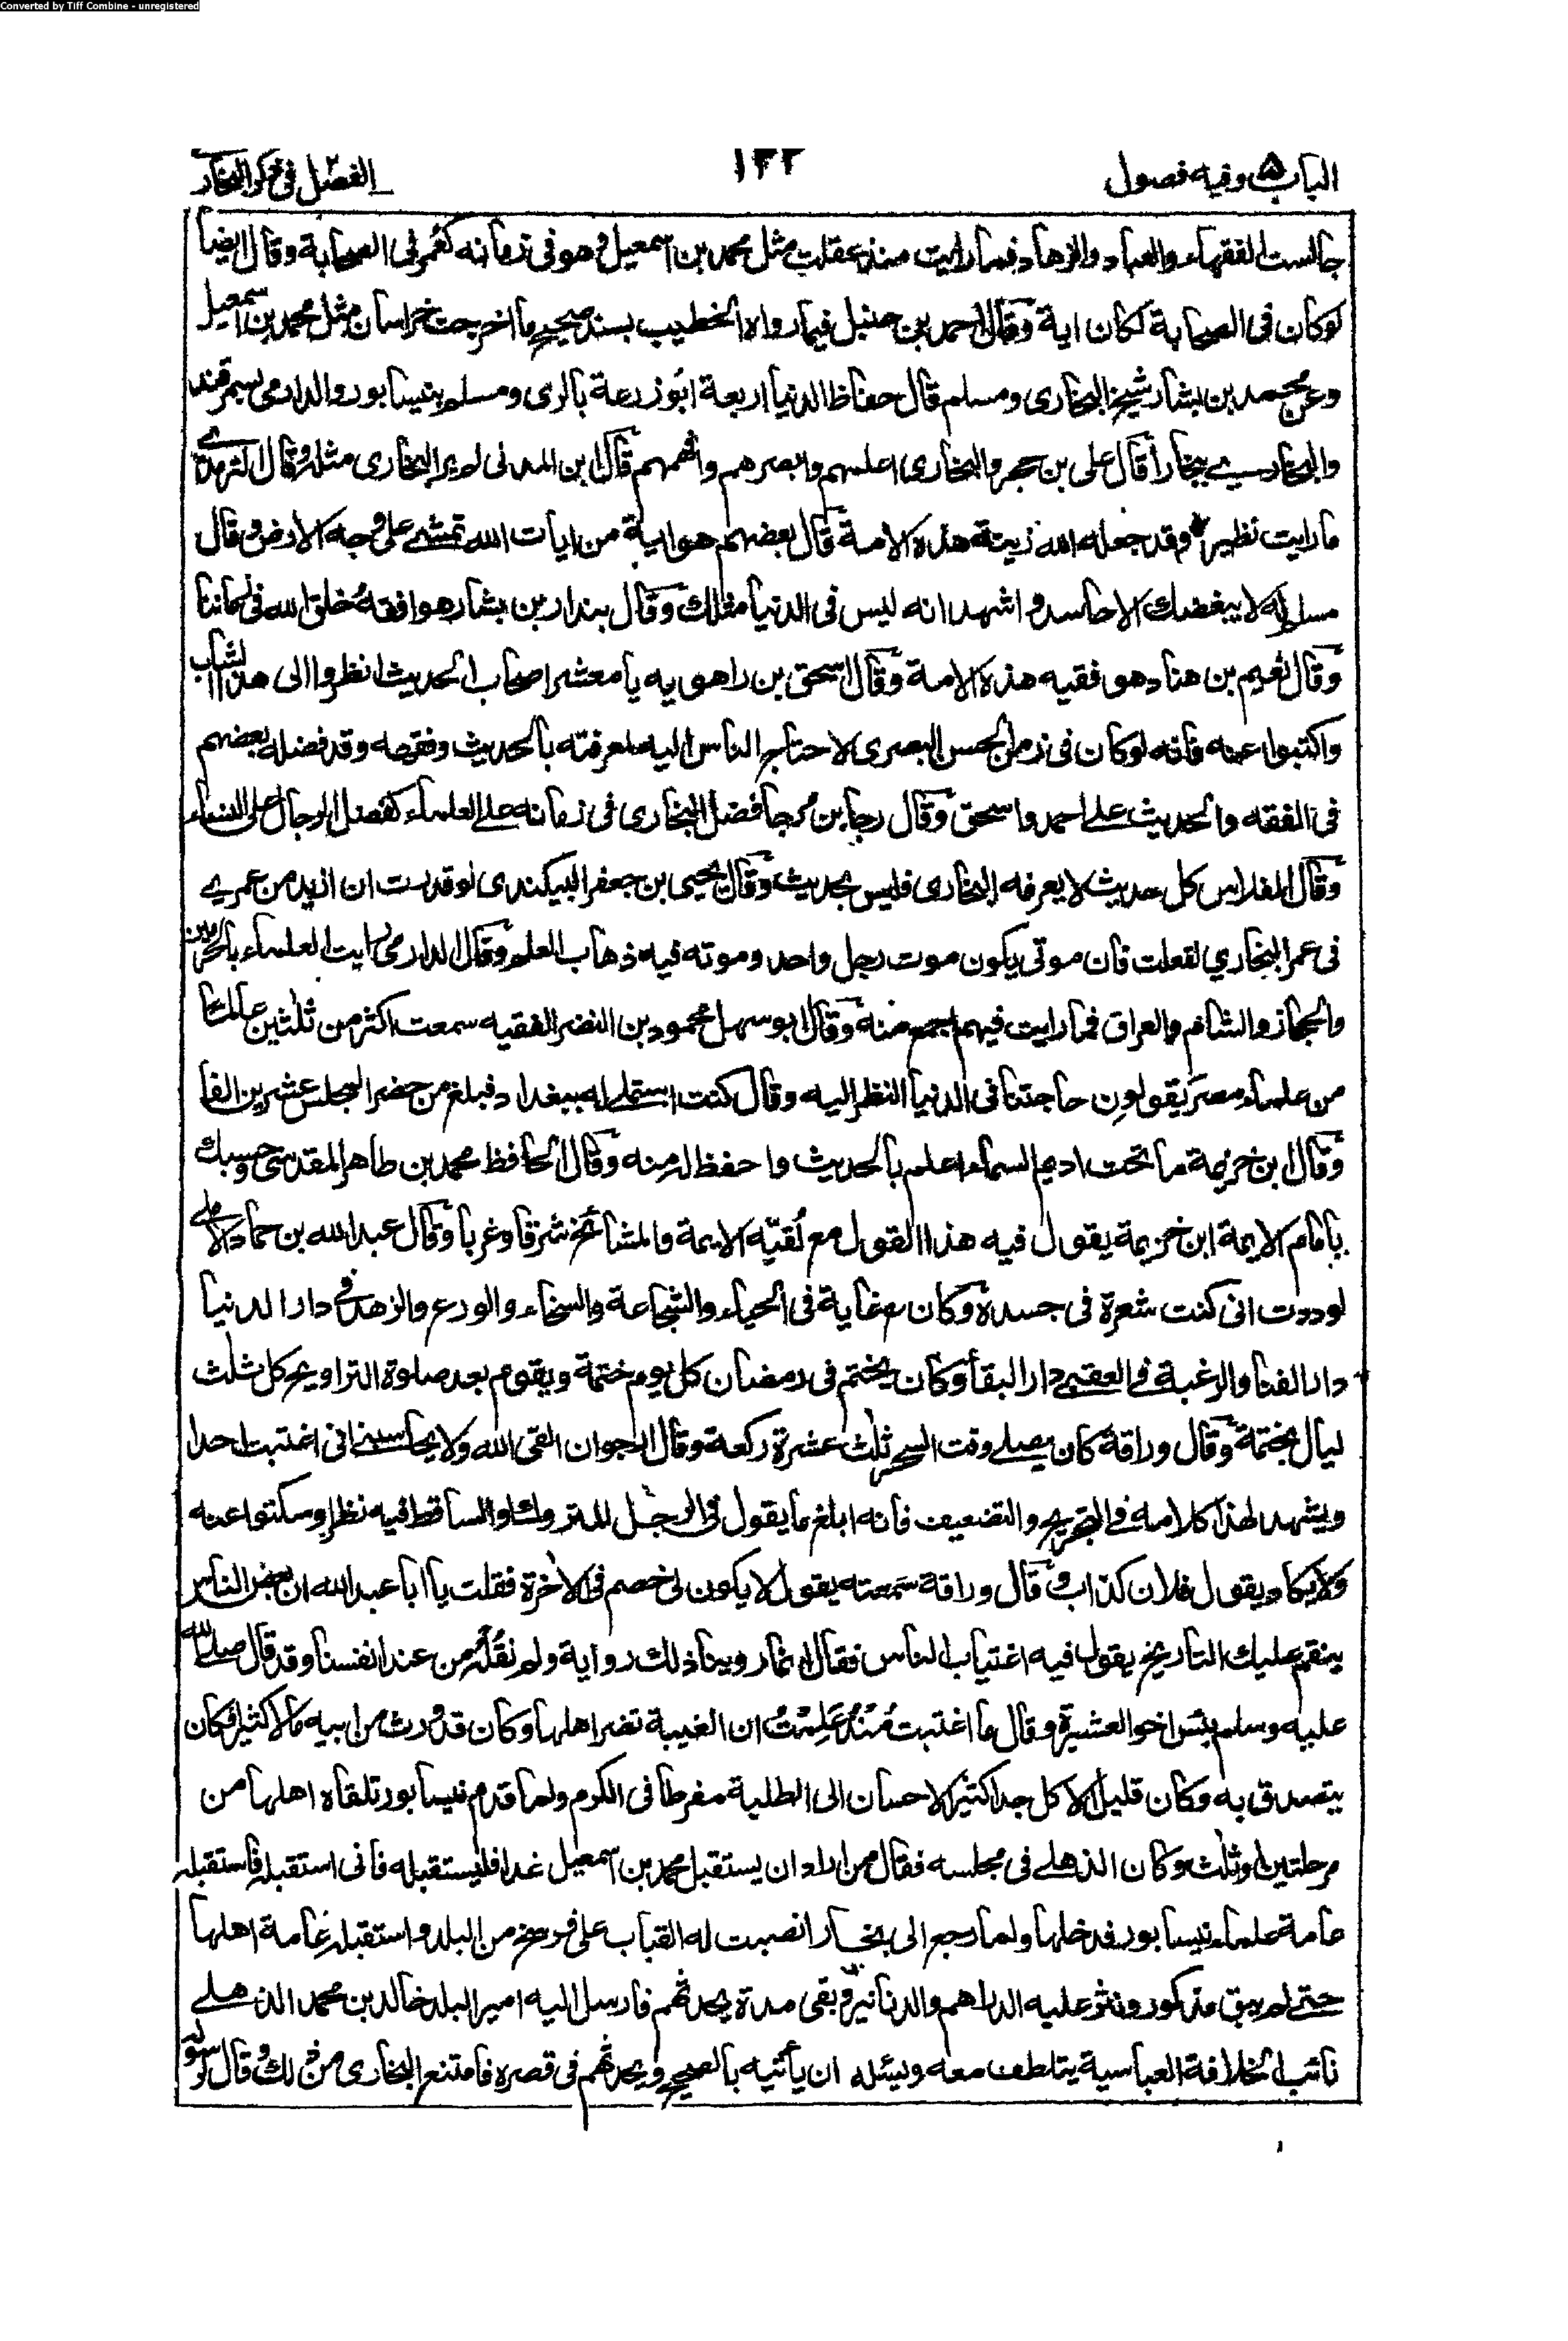 Converted by Tiff Combine - unregistered
الباب ۵ وفيه فصول
١٢٢
الفصل في ذكر البخاري
جالست الفقهاء والعباد والزهاد فما رايت منذ عقلت مثل محمد بن اسمعيل وهو في زمانه كعُمر في الصحابة وقال ايضا
لوكان في الصحابة لكان اية وقال احمد بن حنبل فيما رواه الخطيب بسند صحيح ما اخرجت خراسان مثل محمد بن اسمعيل
وعن محمد بن بشار شيخ البخاري ومسلم قال حفاظ الدنيا اربعة ابو زرعة بالري ومسلم بنيسابور والدارمي بسمرقند
والبخاري ببخارا قال علي بن حجر والبخاري اعلمهم وابصرهم وافهمهم قال ابن المدني لم ير البخاري مثله وقال الترمذي
ما رايت نظيره وقد جعله الله زينة هذه الامة قال بعضهم هو اية من ايات الله تمشي على وجه الارض وقال
مسلم له لا يبغضك الا حاسد واشهد انه ليس في الدنيا مثلك وقال بندار بن بشار هو افقه خلق الله في زماننا
وقال نعيم بن هناد هو فقيه هذه الامة وقال اسحق بن راهويه يا معشر اصحاب الحديث انظروا الى هذا الشاب
واكتبوا عنه فانه لوكان في زمن الحسن البصري لاحتاج الناس اليه لمعرفته بالحديث وفقهه وقد فضله بعضهم
في الفقه والحديث على احمد واسحق وقال رجا بن مرجا فضل البخاري في زمانه على العلماء كفضل الرجال على النساء
وقال الفلاس كل حديث لا يعرفه البخاري فليس بحديث وقال يحيى بن جعفر البيكندي لو قدرت ان ازيد من عمري
في عمر البخاري لفعلت فان موتي يكون موت رجل واحد وموته فيه ذهاب العلم وقال الدارمي رايت العلماء بالحرمين
والحجاز والشام والعراق فما رايت فيهم اجمع منه وقال ابو سهل محمود بن النضر الفقيه سمعت اكثر من ثلثين عالما
من علماء مصر يقولون حاجتنا في الدنيا النظر اليه وقال كنت استملي له ببغداد فبلغ من حضر المجلس عشرين الفا
وقال ابن خزيمة ما تحت اديم السماء اعلم بالحديث واحفظ له منه وقال الحافظ محمد بن طاهر المقدسي وحسبك
بامام الايمة ابن خزيمة يقول فيه هذا القول مع لقيّه الايمة والمشائخ شرقا وغربا وقال عبد الله بن حماد الاملي
لوددت اني كنت شعرة في جسده وكان رض غاية في الحياء والشجاعة والسخاء والورع والزهد في دار الدنيا
دار الفنا والرغبة في العقبى دار البقا وكان يختم في رمضان كل يوم ختمة ويقوم بعد صلوة التراويح كل ثلث
ليال بختمة وقال وراقه كان يصلي وقت السحر ثلث عشرة ركعة وقال ارجو ان القى الله ولا يحاسبني اني اغتبت احدا
ويشهد لهذا كلامه في التجريح والتضعيف فانه ابلغ ما يقول في الرجل المتروك او الساقط فيه نظر او سكتوا عنه
ولا يكاد يقول فلان كذاب و قال وراقه سمعته يقول لا يكون لي خصم في الاخرة فقلت يا ابا عبد الله ان بعض الناس
ينقم عليك التاريخ يقول فيه اغتياب الناس فقال انما روينا ذلك رواية ولم نقُله من عند انفسنا وقد قال صلى الله
عليه وسلم بئس اخو العشيرة وقال ما اغتبت مُنْذُ عَلِمْتُ ان الغيبة تضر اهلها وكان قد ورث من ابيه مالا كثيرا فكان
يتصدق به وكان قليل الاكل جدا كثير الاحسان الى الطلبة مفرطا في الكرم ولما قدم نيسابور تلقاه اهلها من
مرحلتين او ثلث وكان الذهلي في مجلسه فقال من اراد ان يستقبل محمد بن اسمعيل غدا فليستقبله فاني استقبله فاستقبله
عامة علماء نيسابور فدخلها ولما رجع الى بخارا نصبت له القباب على فرسخ من البلد واستقبله عامة اهلها
حتى لم يبق مذكور ونثر عليه الدراهم والدنانير وبقي مدة يحدثهم فارسل اليه امير البلد خالد بن محمد الذهلي
نائب الخلافة العباسية يتلطف معه ويسئله ان يأتيه بالصحيح ويحدثهم في قصره فامتنع البخاري من ذلك وقال لرسوله